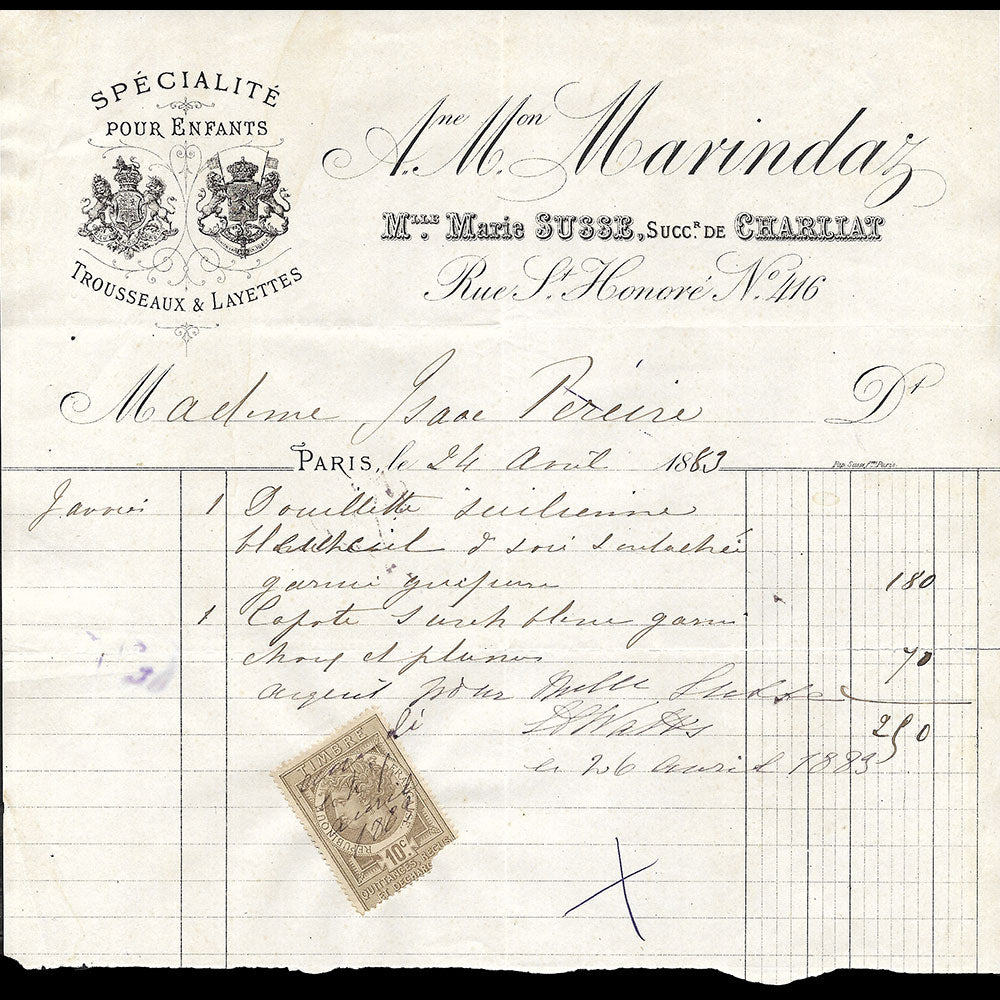 SPÉCIALITÉ
POUR ENFANTS
TROUSSEAUX & LAYETTES
Ane Mon
A. M. Marindaz
MLLE Marie SUSSE, SUCCR DE CHARLIAT
Rue St Honoré No 416
Madame Isaac Péreire Dt
PARIS, le 24 avril 1883
Pap. Susse, Paris
Janvier 1 Douillette sicilienne
bleu ciel & soie soutachée
garnie guipure 180
1 Capote surah bleu garni
choux et plumes 70
argent pour Melle Susse
250
le 26 avril 1883
TIMBRE
RÉPUBLIQUE FRANÇAISE
10c
QUITTANCES, REÇUS
ET DÉCHARGES